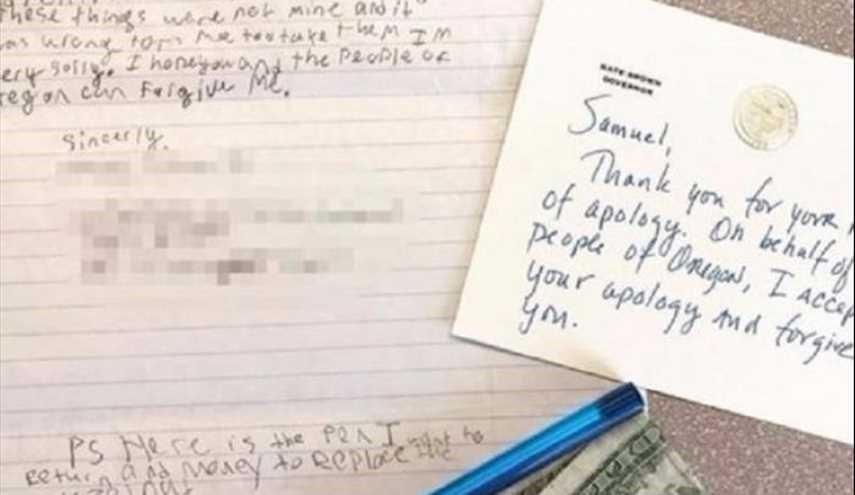 these things were not mine and it
was wrong for me too take them I'm
very sorry. I hope you and the people of
regon can Forgive Me.
Sincerly,
PS Here is the pen I want to
return and money to replace the
KATE BROWN
GOVERNOR
Samuel,
Thank you for your
of apology. On behalf of
people of Oregon, I accep
your apology and forgive
you.